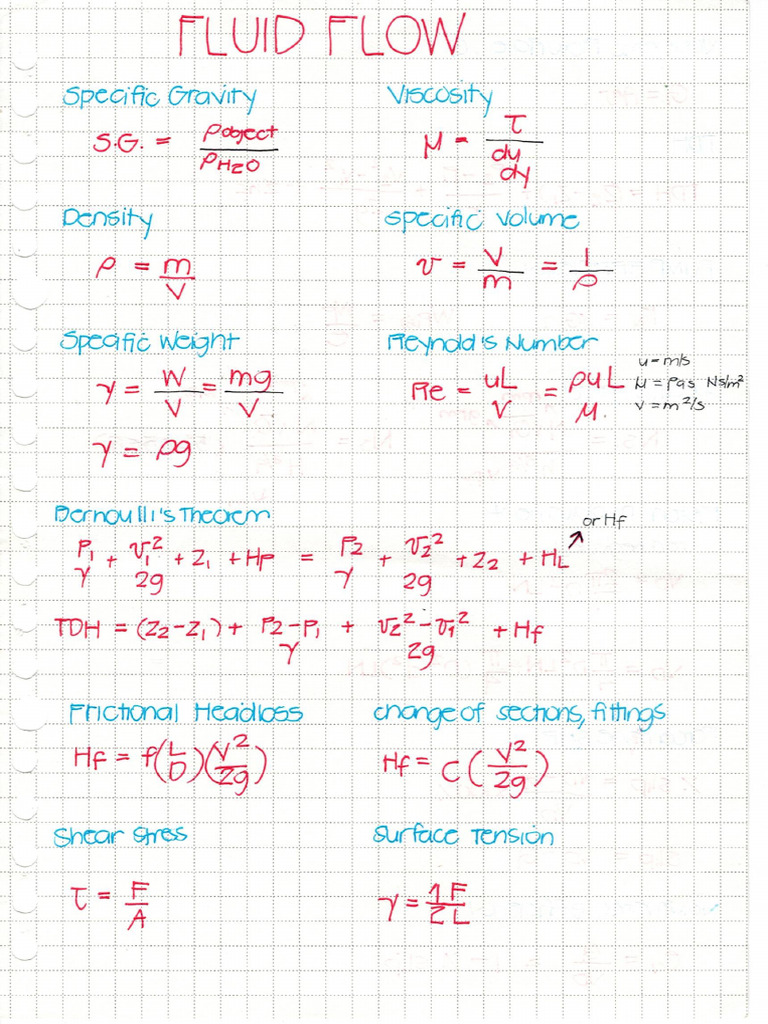 FLUID FLOW
Specific Gravity
S.G. = ρobject / ρH2O
Viscosity
μ = τ / du/dy
Density
ρ = m/V
Specific Volume
v = V/m = 1/ρ
Specific Weight
γ = W/V = mg/V
γ = ρg
Reynold's Number
Re = uL/V = ρuL/μ
u = m/s
μ = Pa s Ns/m²
v = m²/s
Bernoulli's Theorem
P1/γ + v1²/2g + Z1 + HP = P2/γ + v2²/2g + Z2 + HL
or Hf
TDH = (Z2-Z1) + P2-P1/γ + v2²-v1²/2g + Hf
Frictional Headloss
Hf = f(L/D)(V²/2g)
change of sections, fittings
Hf = C(V²/2g)
Shear Stress
τ = F/A
Surface Tension
γ = 1F/2L